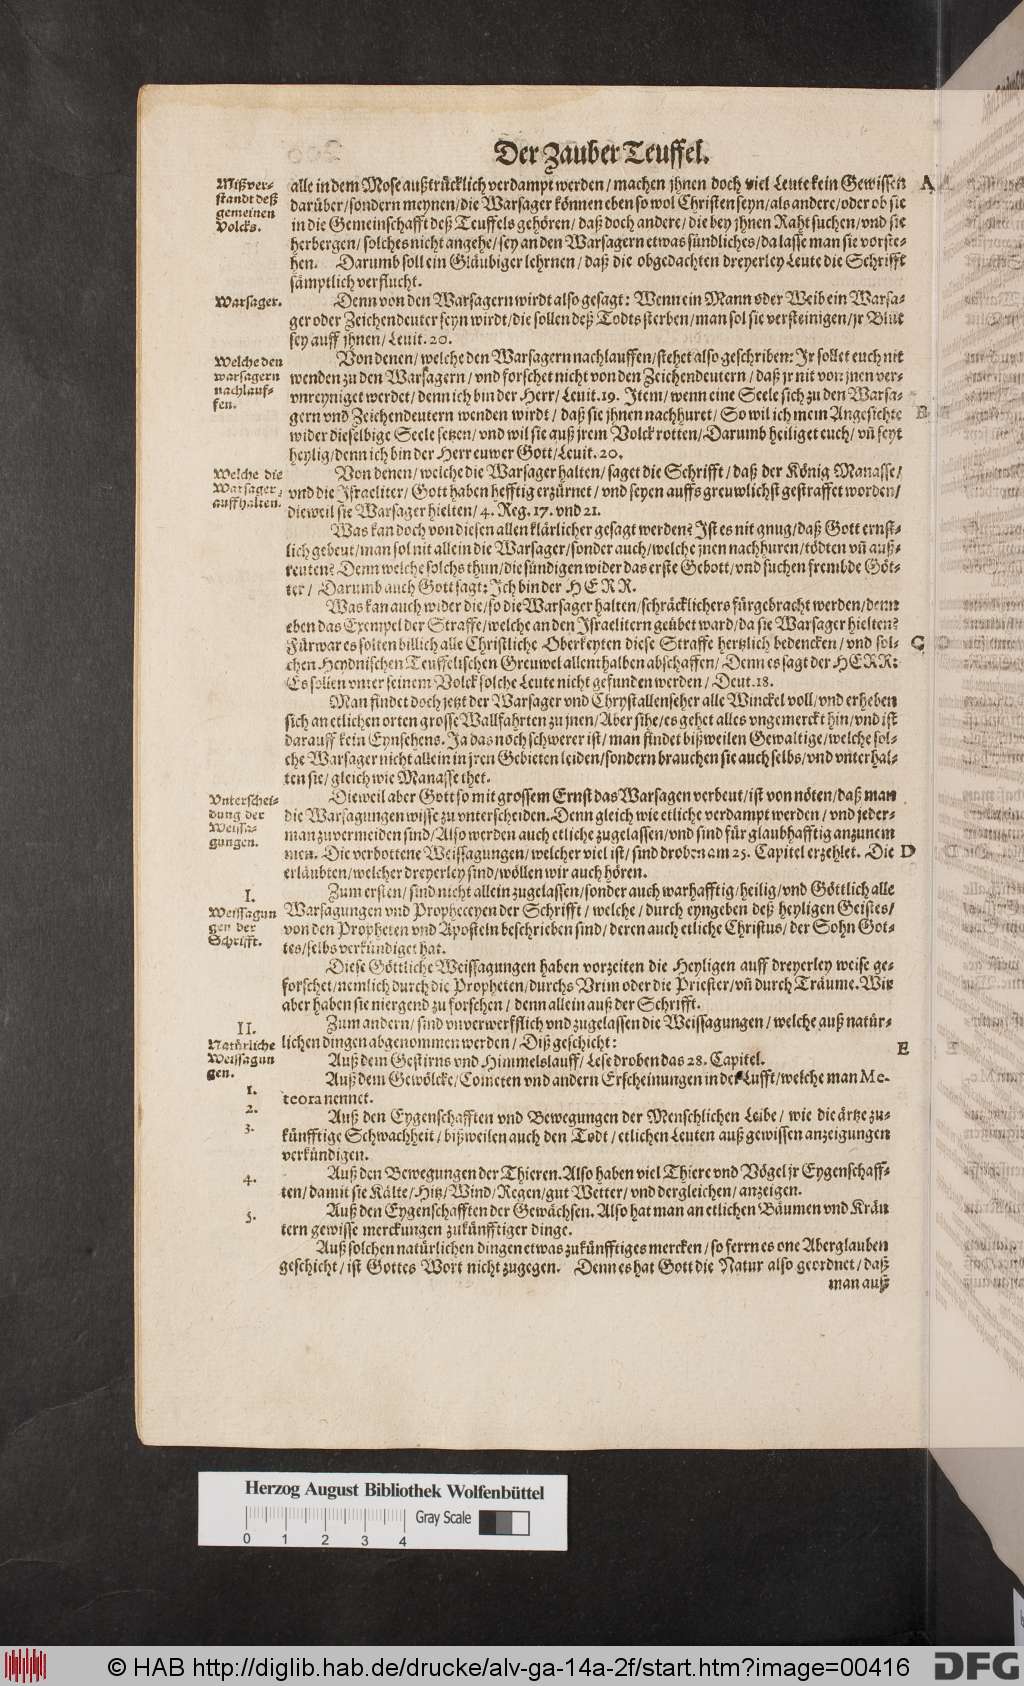 Der Zauber Teuffel.
Mißver-
standt deß
gemeinen
Volcks.
alle in dem Mose außtrücklich verdampt werden / machen jhnen doch viel Leute kein Gewissen
A
darüber / sondern meynen / die Warsager können eben so wol Christen seyn / als andere / oder ob sie
in die Gemeinschafft deß Teuffels gehören / daß doch andere / die bey jhnen Raht suchen / vnd sie
herbergen / solches nicht angehe / sey an den Warsagern etwas sündliches / da lasse man sie vorste-
hen. Darumb soll ein Gläubiger lehrnen / daß die obgedachten dreyerley Leute die Schrifft
sämptlich verflucht.
Warsager.
Denn von den Warsagern wirdt also gesagt: Wenn ein Mann oder Weib ein Warsa-
ger oder Zeichendeuter seyn wirdt / die sollen deß Todts sterben / man sol sie versteinigen / jr Blut
sey auff jhnen / Leuit. 20.
Welche den
warsagern
nachlauf-
fen.
Von denen / welche den Warsagern nachlauffen / stehet also geschriben: Jr sollet euch nit
wenden zu den Warsagern / vnd forschet nicht von den Zeichendeutern / daß jr nit von jnen ver-
vnreyniget werdet / denn ich bin der Herr / Leuit. 19. Item / wenn eine Seele sich zu den Warsa-
gern vnd Zeichendeutern wenden wirdt / daß sie jhnen nachhuret / So wil ich mein Angesichte
B
wider dieselbige Seele setzen / vnd wil sie auß jrem Volck rotten / Darumb heiliget euch / vñ seyt
heylig / denn ich bin der Herr euwer Gott / Leuit. 20.
Welche die
Warsager
auffhalten.
Von denen / welche die Warsager halten / saget die Schrifft / daß der König Manasse /
vnd die Israeliter / Gott haben hefftig erzürnet / vnd seyen auffs greuwlichst gestraffet worden /
dieweil sie Warsager hielten / 4. Reg. 17. vnd 21.
Was kan doch von diesen allen klärlicher gesagt werden? Ist es nit gnug / daß Gott ernst-
lich gebeut / man sol nit allein die Warsager / sonder auch / welche jnen nachhuren / tödten vñ auß-
reuten? Denn welche solchs thun / die sündigen wider das erste Gebott / vnd suchen frembde Göt-
ter / Darumb auch Gott sagt: Ich bin der HERR.
Was kan auch wider die / so die Warsager halten / schräcklichers fürgebracht werden / denn
eben das Exempel der Straffe / welche an den Israelitern geübet ward / da sie Warsager hielten?
Fürwar es solten billich alle Christliche Oberkeyten diese Straffe hertzlich bedencken / vnd sol-
C
chen Heydnischen Teuffelischen Greuwel allenthalben abschaffen / Denn es sagt der HERR:
Es sollen vnter seinem Volck solche Leute nicht gefunden werden / Deut. 18.
Man findet doch jetzt der Warsager vnd Chrystallenseher alle Winckel voll / vnd erheben
sich an etlichen orten grosse Wallfahrten zu jnen / Aber sihe / es gehet alles vngemerckt hin / vnd ist
darauff kein Eynsehens. Ja das noch schwerer ist / man findet bißweilen Gewaltige / welche sol-
che Warsager nicht allein in jren Gebieten leiden / sondern brauchen sie auch selbs / vnd vnterhal-
ten sie / gleich wie Manasse thet.
Vnterschei-
dung der
Weissa-
gungen.
Dieweil aber Gott so mit grossem Ernst das Warsagen verbeut / ist von nöten / daß man
die Warsagungen wisse zu vnterscheiden. Denn gleich wie etliche verdampt werden / vnd jeder-
man zuvermeiden sind / Also werden auch etliche zugelassen / vnd sind für glaubhafftig anzunem
men. Die verbottene Weissagungen / welcher viel ist / sind droben am 25. Capitel erzehlet. Die
D
erläubten / welcher dreyerley sind / wöllen wir auch hören.
I.
Weissagun
gen der
Schrifft.
Zum ersten / sind nicht allein zugelassen / sonder auch warhafftig / heilig / vnd Göttlich alle
Warsagungen vnd Propheceyen der Schrifft / welche / durch eyngeben deß heyligen Geistes /
von den Propheten vnd Aposteln beschrieben sind / deren auch etliche Christus / der Sohn Got-
tes / selbs verkündiget hat.
Diese Göttliche Weissagungen haben vorzeiten die Heyligen auff dreyerley weise ge-
forschet / nemlich durch die Propheten / durchs Vrim oder die Priester / vñ durch Träume. Wir
aber haben sie niergend zu forschen / denn allein auß der Schrifft.
II.
Natürliche
Weissagun
gen.
Zum andern / sind vnverwerfflich vnd zugelassen die Weissagungen / welche auß natür-
lichen dingen abgenommen werden / Diß geschicht:
E
Auß dem Gestirns vnd Himmelslauff / Lese droben das 28. Capitel.
1.
Auß dem Gewölcke / Cometen vnd andern Erscheinungen in der Lufft / welche man Me-
teora nennet.
2.
Auß den Eygenschafften vnd Bewegungen der Menschlichen Leibe / wie die ärtze zu-
3.
künfftige Schwachheit / bißweilen auch den Todt / etlichen Leuten auß gewissen anzeigungen
verkündigen.
4.
Auß den Bewegungen der Thieren. Also haben viel Thiere vnd Vögel jr Eygenschaff-
ten / damit sie Kälte / Hitz / Wind / Regen / gut Wetter / vnd dergleichen / anzeigen.
5.
Auß den Eygenschafften der Gewächsen. Also hat man an etlichen Bäumen vnd Kräu
tern gewisse merckungen zukünfftiger dinge.
Auß solchen natürlichen dingen etwas zukünfftiges mercken / so ferrn es one Aberglauben
geschicht / ist Gottes Wort nicht zugegen. Denn es hat Gott die Natur also geordnet / daß
man auß
Herzog August Bibliothek Wolfenbüttel
Gray Scale
0 1 2 3 4
© HAB http://diglib.hab.de/drucke/alv-ga-14a-2f/start.htm?image=00416
DFG